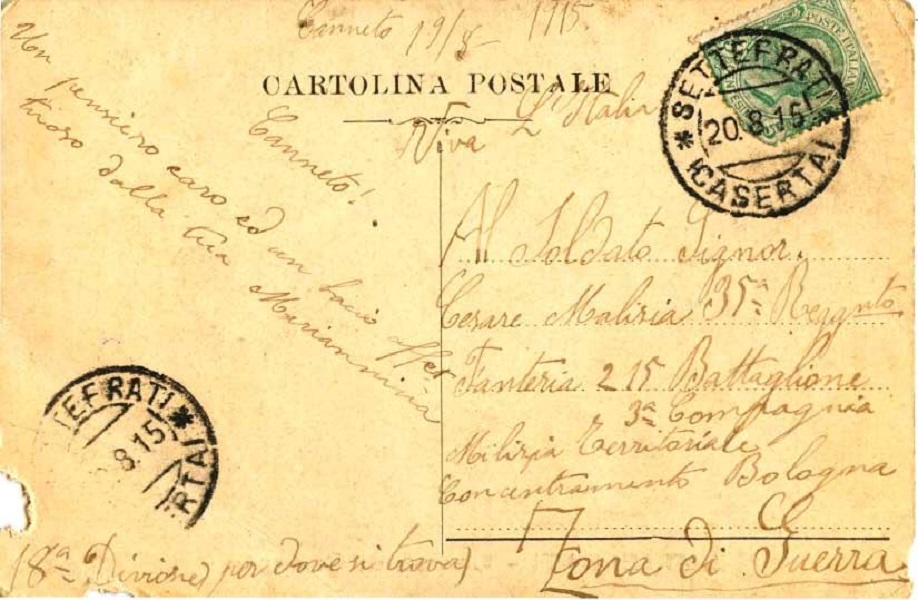 Canneto 19/8 - 1915.
CARTOLINA POSTALE
Viva L'Italia
Canneto!
Un pensiero caro ed un bacio affet
tuoso dalla tua Mariannina
POSTE ITALIANE
* SETTEFRATI *
20.8.15
(CASERTA)
Al Soldato Signor.
Cesare Malizia 35ª Reggnto
Fanteria 215 Battaglione
3ª Compagnia
Milizia Territoriale
Concentramento Bologna
Zona di Guerra
TEFRATI *
8.15
RTA)
(8ª Divisione) per dove si trova)